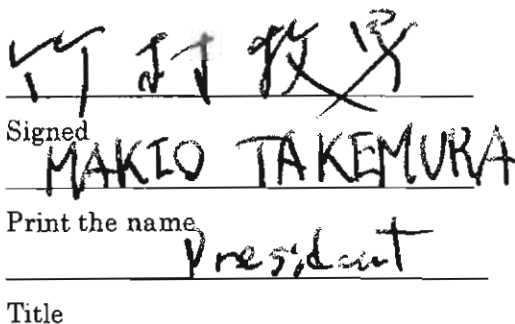 竹村牧男
Signed
MAKIO TAKEMURA
Print the name
President
Title